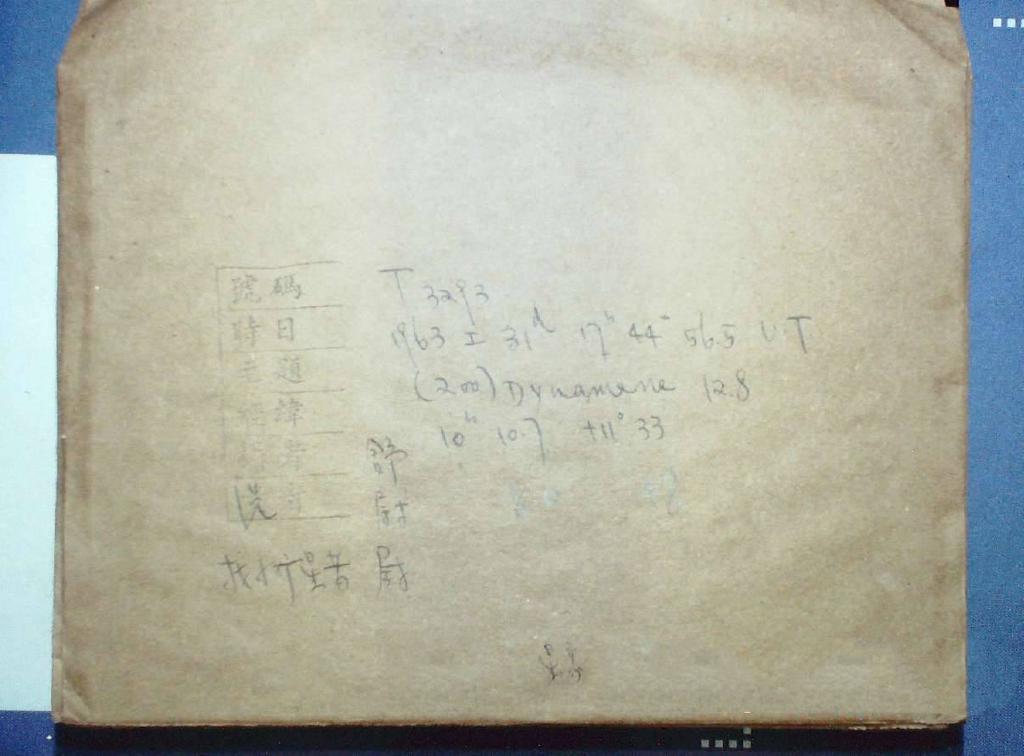 號碼 T 3293
時日 1963 I 31ᵈ 17ʰ 44ᵐ 56.5 U.T
主題 (200) Dynamene 12.8
經緯 10ʰ 10.7 +11° 33
者 舒
洗者 尉
找小行星者 尉